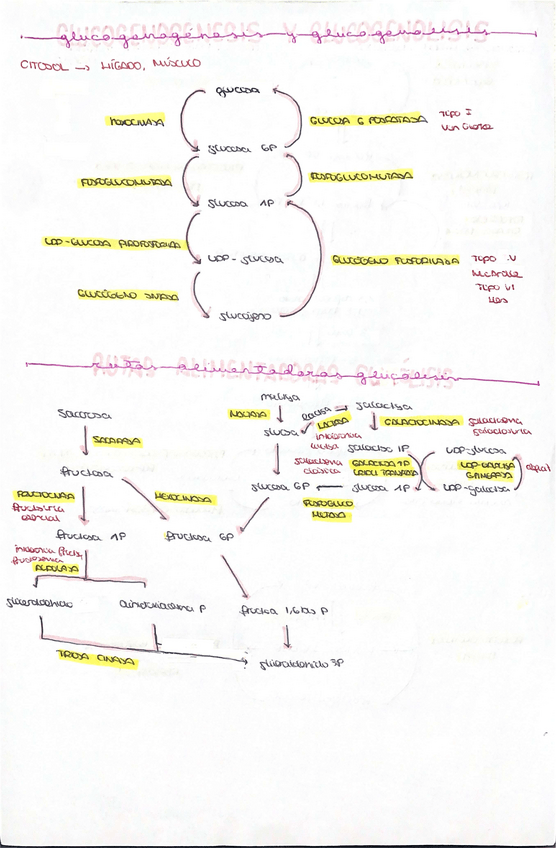 glucogenogénesis y glucogenolisis
CITOSOL → HÍGADO, MÚSCULO
glucosa
HEXOCINASA
GLUCOSA 6 FOSFATASA
TIPO I
Von Gierke
glucosa 6P
FOSFOGLUCOMUTASA
FOSFOGLUCOMUTASA
glucosa 1P
UDP-GLUCOSA PIROFOSFORILASA
UDP-glucosa
GLUCÓGENO FOSFORILASA
TIPO V
McArdle
TIPO VI
Hers
GLUCÓGENO SINTASA
glucógeno
rutas alimentadoras glucólisis
maltosa
sacarosa
MALTASA
lactosa
galactosa
LACTASA
glucosa
GALACTOCINASA
SACARASA
galactosa 1P
UDP-glucosa
fructosa
GALACTOSA 1P
glucosa 6P
glucosa 1P
UDP-galactosa
FRUCTOCINASA
HEXOCINASA
FOSFOGLUCO
MUTASA
fructosuria
esencial
fructosa 1P
fructosa 6P
ALDOLASA
gliceraldehído
dihidroxiacetona P
fructosa 1,6 bis P
TRIOSA CINASA
gliceraldehído 3P